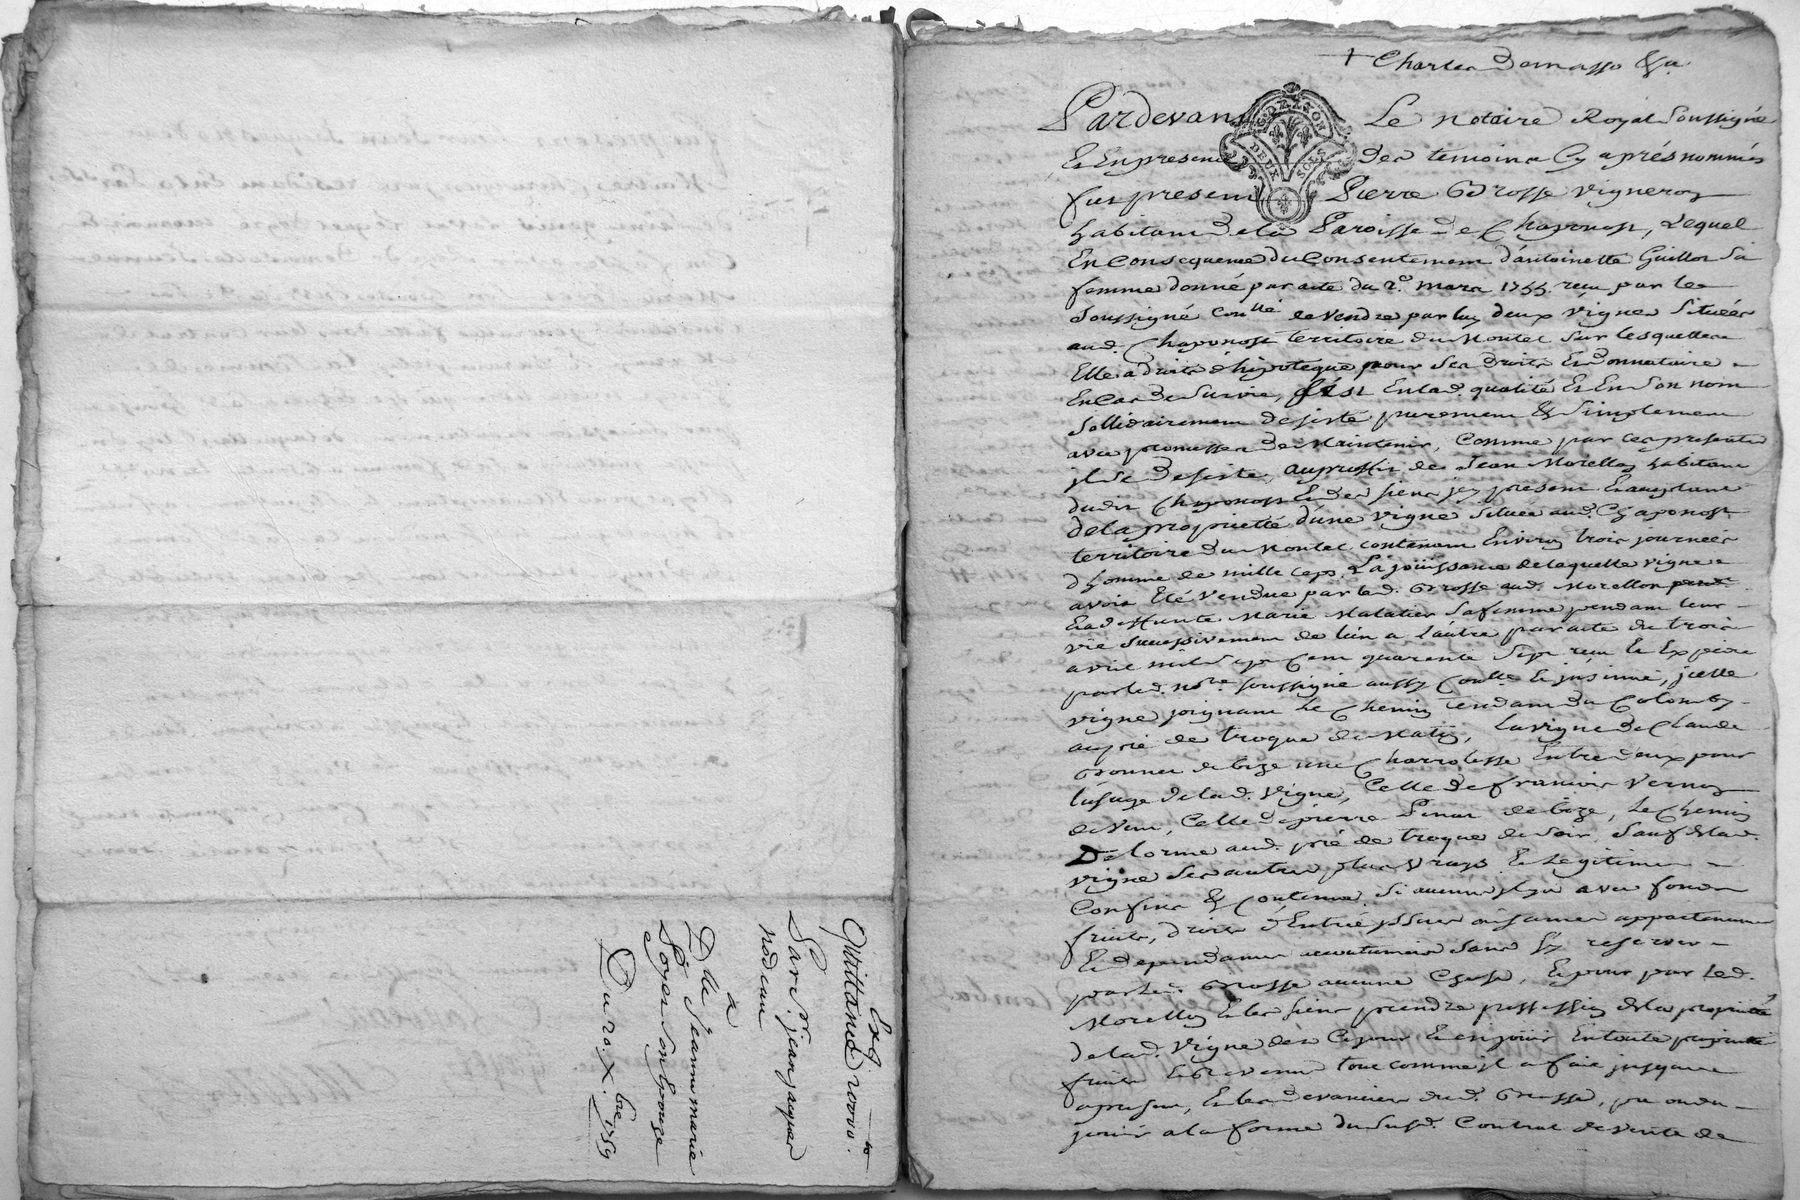 Exg
Quittance 10000.tt
Par Sr. jean jacques
nodeau
a
Dlle Jeanne marie
Soyer Son Epouze
Du 20. Xbre 1759
+ Charles Damasse &a.
Pardevant Le Notaire Royal Soussigné
Et En presence des temoins Cy aprés nommés
fut present Pierre Grosse vigneron
habitant De la Paroisse De Chaponost, Lequel
En Consequence du Consentement d'antoinette Guillot Sa
femme donné par acte du 2e. mars 1755. recu par le
Soussigné Conllé de vendre par luy deux vignes Situées
aud. Chaponost territoire du Montel Sur lesquelles
Elle a droits d'hipoteque pour Ses Droits Et Donnataire
En Cas De Survie, S'Est En lad. qualité Et En Son nom
Sollidairement desisté purement & Simplement
avec promesses De Maintenir, Comme par ces presentes
il Se Desiste, au proffit de Jean Morellon habitant
dudit Chaponost Et des siens icy present Et acceptant
de la proprieté d'une vigne Située aud. Chaponost
territoire du Montel contenant Environ trois journées
d'homme de mille ceps, La joüissance de laquelle vigne
avoit Eté vendue par led. Grosse aud. Morellon
Et a deffunte Marie Malatier Sa femme pendant leur
vie Successivement de l'un a l'autre par acte du trois
avril mil Sept Cent quarante Sept recu Et Expedié
par led. nore. soussigné aussy Conllé Et insinué, icelle
vigne joignant Le Chemin tendant du Colomby
au pré de troque de Matin, La vigne De Claude
Bonnet de bize une Charrolesse Entre deux pour
lusage De lad. vigne, Celle de francois Vernay
de vent, Celle De pierre Pinat de bize, Le Chemin
De lorme aud. pré de troque de Soir, Sauf de lad.
vigne Ses autres plus vrays & Legitimes
Confins & Contenue Si aucuns il y a avec fonds
fruits, droits d'Entrée yssues aisances appartenances
Et dependances accoutumées Sans Sy reserver
par led. Grosse aucune Chose, Et pour par led.
Morellon Et les siens prendre possession de la proprieté
de lad. vigne dés Ce jour Et en jouir En toute proprieté
fruits Et Revenus tout comme il a fait jusques
a present, Et les devanciers dud. Grosse, pu ou du
jouir a la forme du Susd. Contrat de vente de